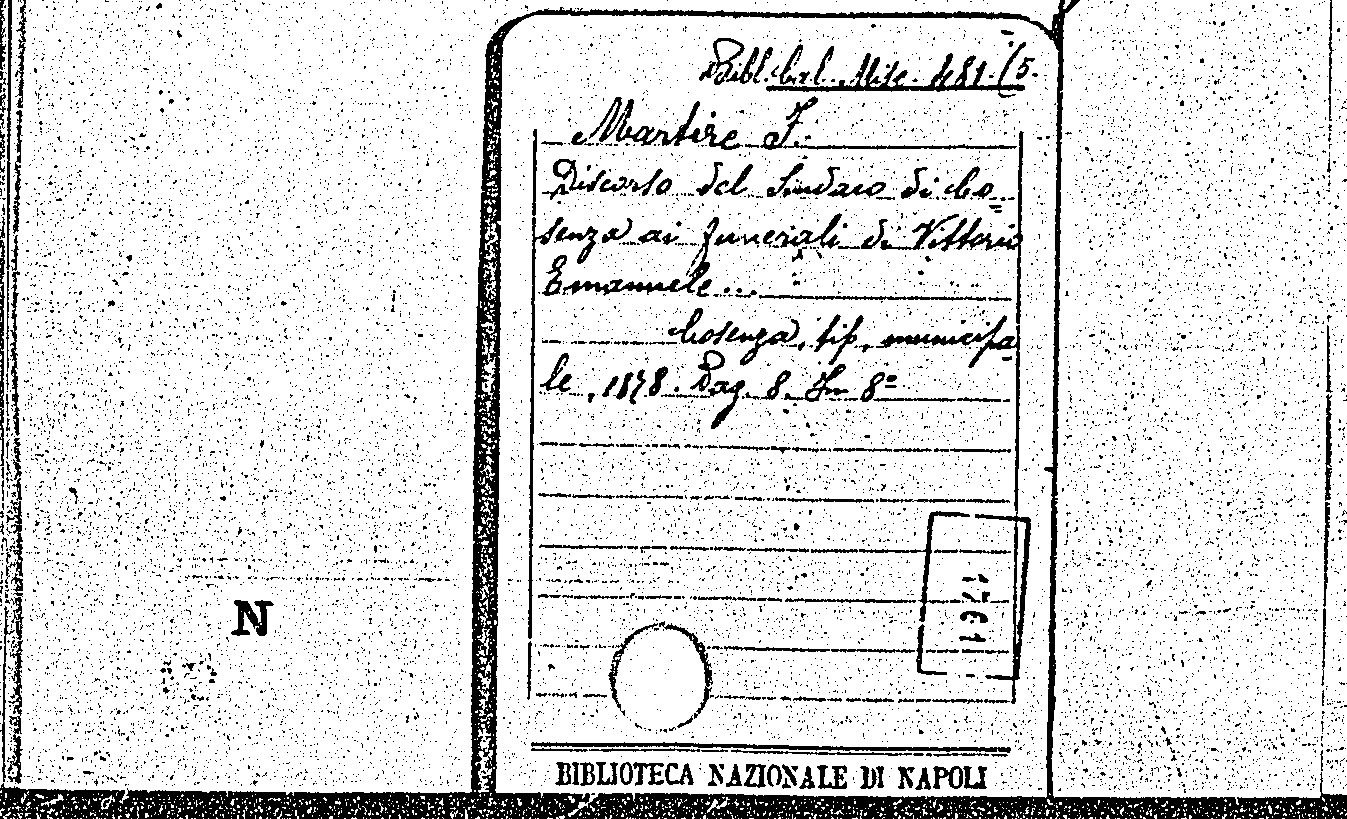 Bibl. Cal. Misc. A 81. (5.
Martire F.
Discorso del Sindaco di Co=
senza ai funerali di Vittorio
Emanuele ...
Cosenza, tip. municipa-
le, 1878. Pag. 8. In 8º
1761
N
BIBLIOTECA NAZIONALE DI NAPOLI